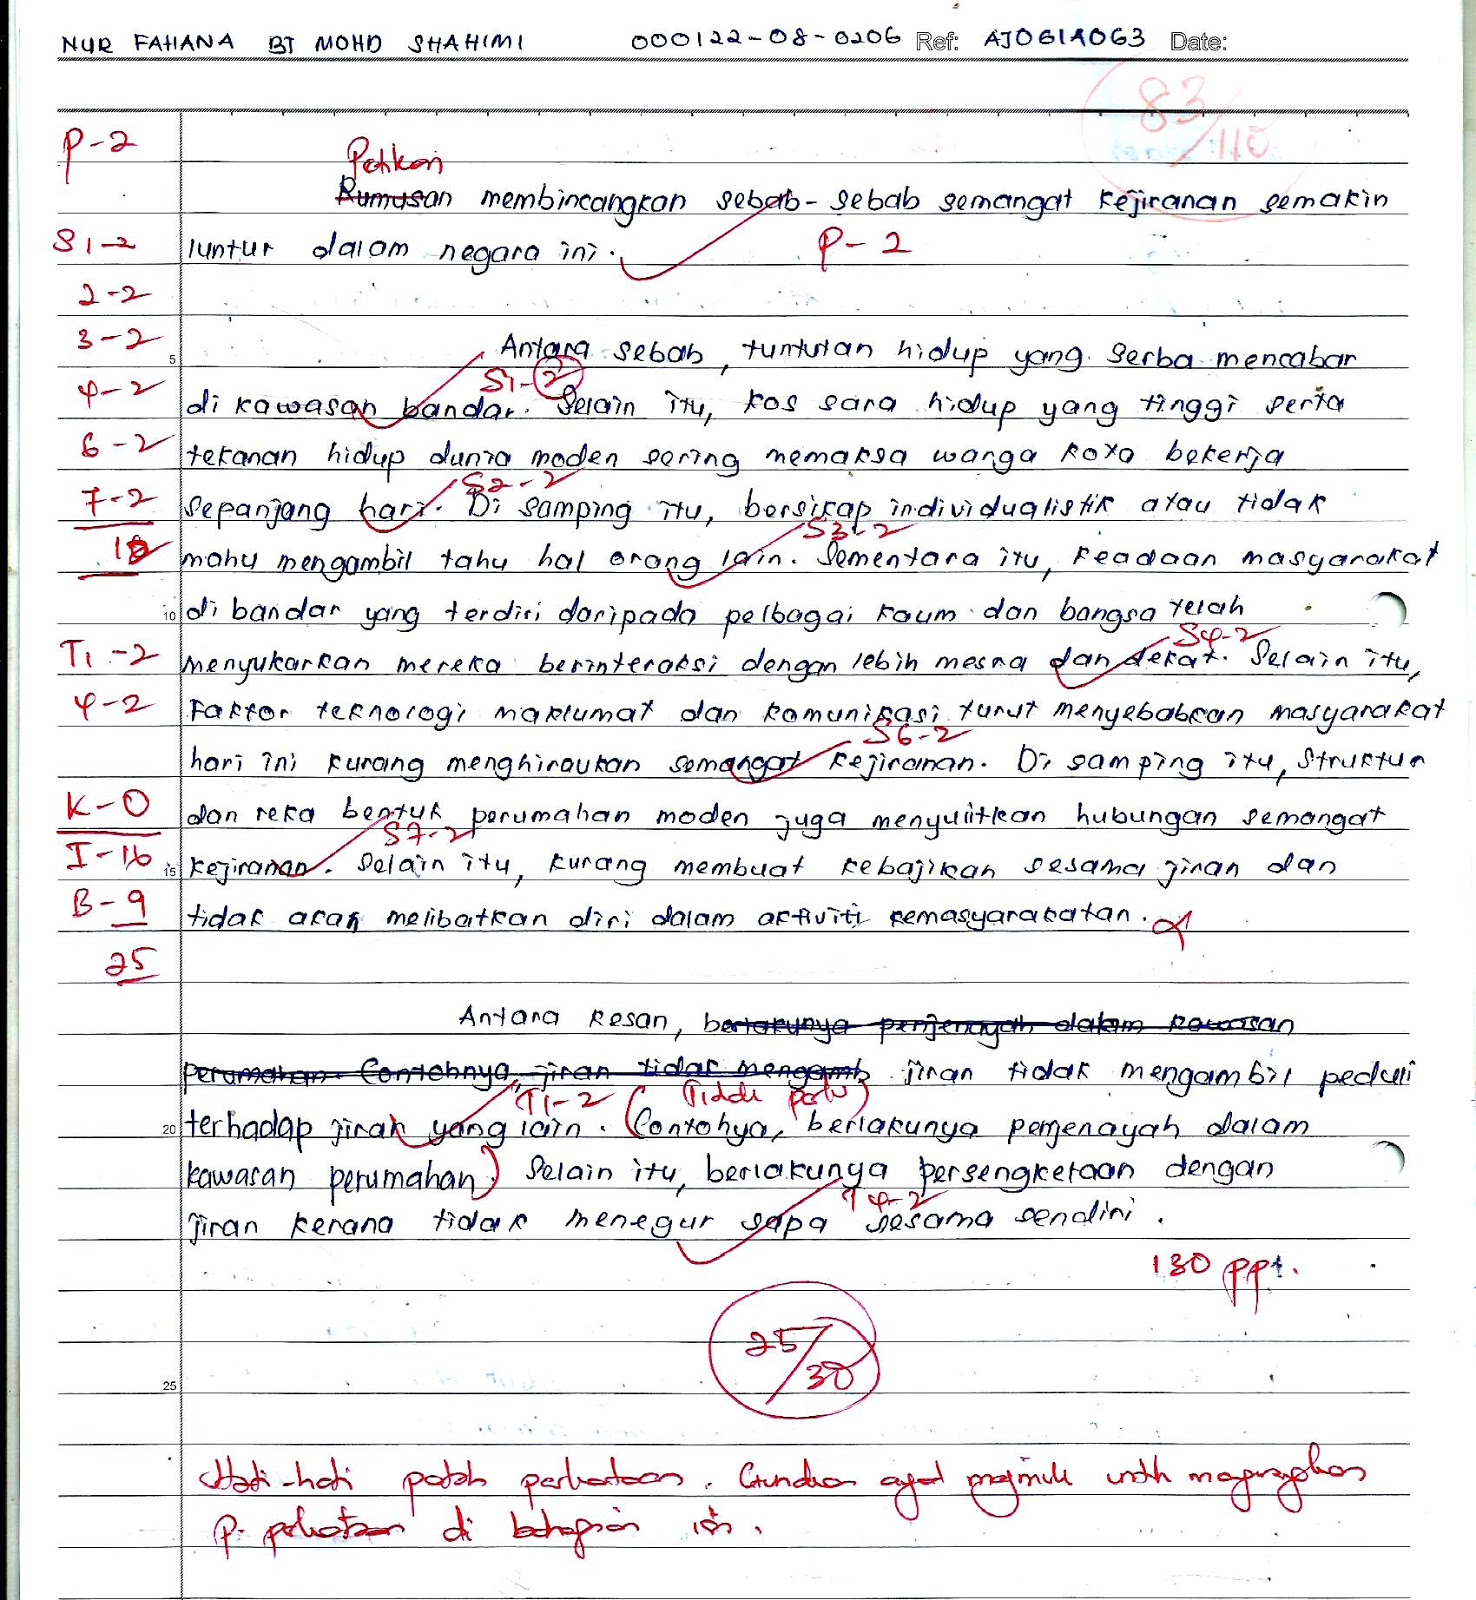 NUR FAHANA BT MOHD SHAHIMI 000122-08-0206 Ref: AJ061A063 Date:
83/110
P-2
Petikan
Rumusan membincangkan sebab-sebab semangat kejiranan semakin
S1-2 luntur dalam negara ini. P-2
2-2
3-2
5 Antara sebab, tuntutan hidup yang serba mencabar
S1-2
4-2 di kawasan bandar. Selain itu, kos sara hidup yang tinggi serta
6-2 tekanan hidup dunia moden sering memaksa warga kota bekerja
S2-2
7-2 sepanjang hari. Di samping itu, bersikap individualistik atau tidak
S3-2
18 mahu mengambil tahu hal orang lain. Sementara itu, keadaan masyarakat
10 di bandar yang terdiri daripada pelbagai kaum dan bangsa telah
S4-2
T1-2 menyukarkan mereka berinteraksi dengan lebih mesra dan dekat. Selain itu,
4-2 Faktor teknologi maklumat dan komunikasi turut menyebabkan masyarakat
S6-2
hari ini kurang menghiraukan semangat kejiranan. Di samping itu, struktur
K-0 dan reka bentuk perumahan moden juga menyulitkan hubungan semangat
S7-2
I-16 15 kejiranan. Selain itu, kurang membuat kebajikan sesama jiran dan
B-9 tidak akan melibatkan diri dalam aktiviti kemasyarakatan.
25
Antara kesan, berlakunya penjenayah dalam kawasan
perumahan Contohnya, jiran tidak mengamb jiran tidak mengambil peduli
T1-2 (Tidak perlu)
20 terhadap jiran yang lain. (Contohya, berlakunya penjenayah dalam
kawasan perumahan.) Selain itu, berlakunya persengketaan dengan
T4-2
jiran kerana tidak menegur sapa sesama sendiri.
130 ppt.
25/30
25
Hati-hati patah perkataan. Gunakan ayat majmuk untk mengurangkan
p. perkataan di bahagian isi.